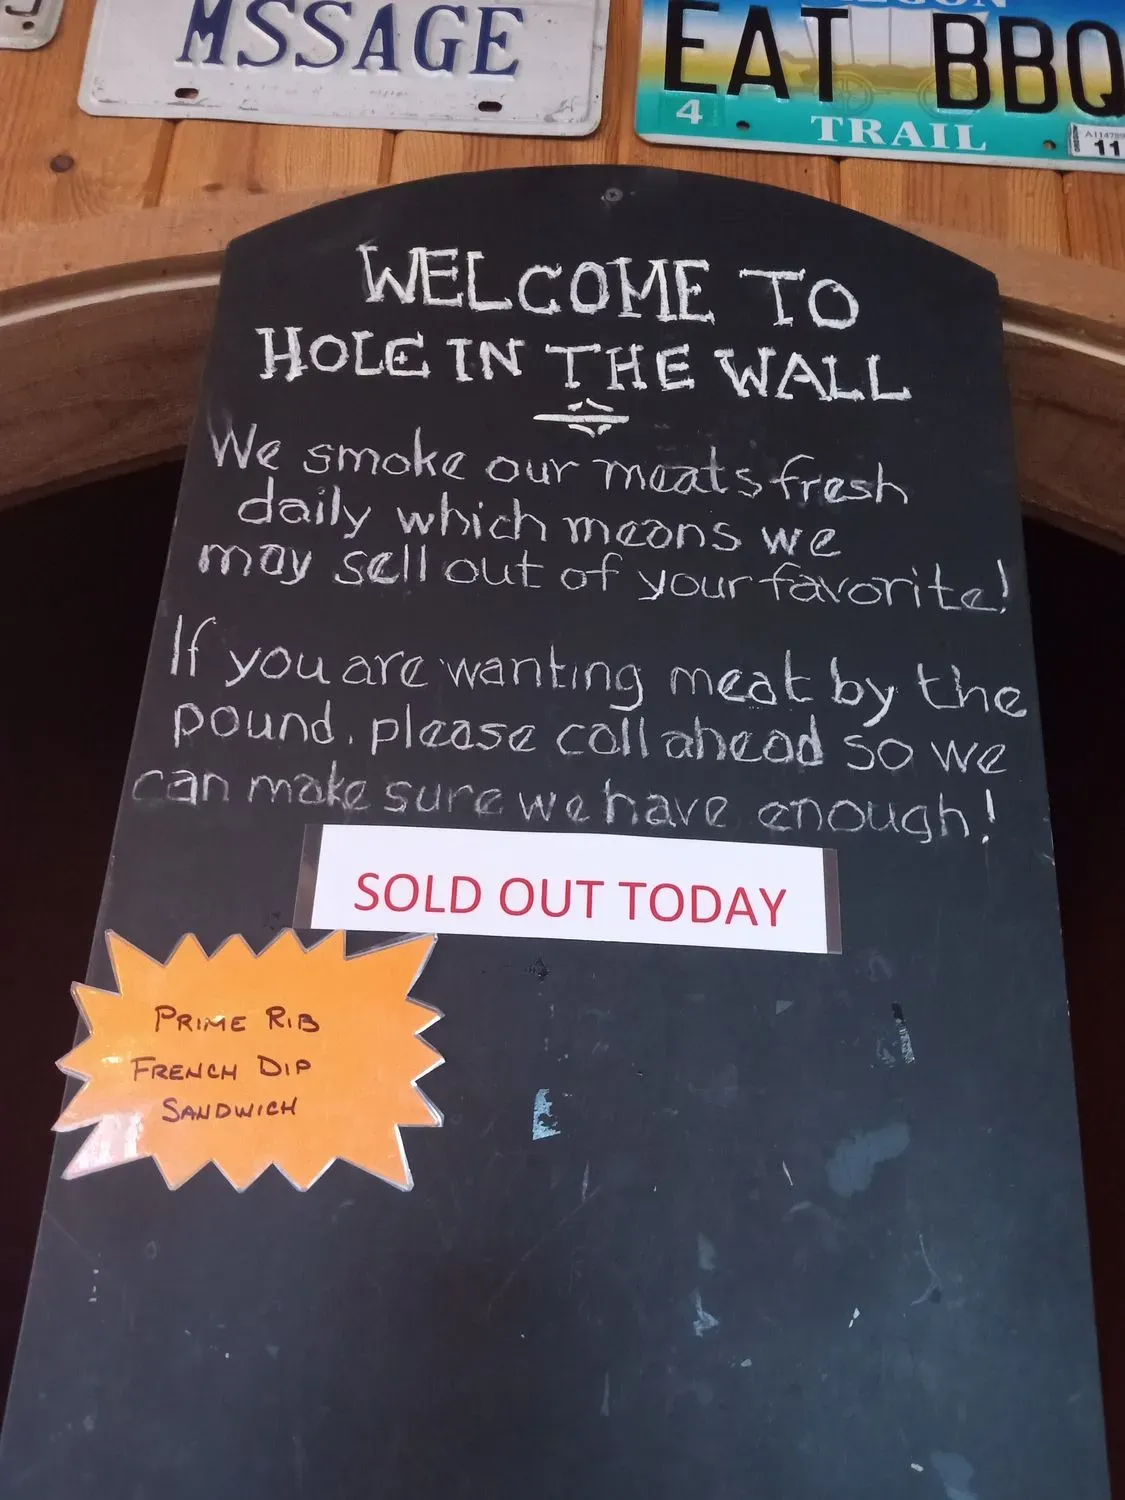 MSSAGE
EAT BBQ
4
TRAIL
11
WELCOME TO
HOLE IN THE WALL
We smoke our meats fresh
daily which means we
may sell out of your favorite!
If you are wanting meat by the
pound, please call ahead so we
can make sure we have enough!
SOLD OUT TODAY
PRIME RIB
FRENCH DIP
SANDWICH